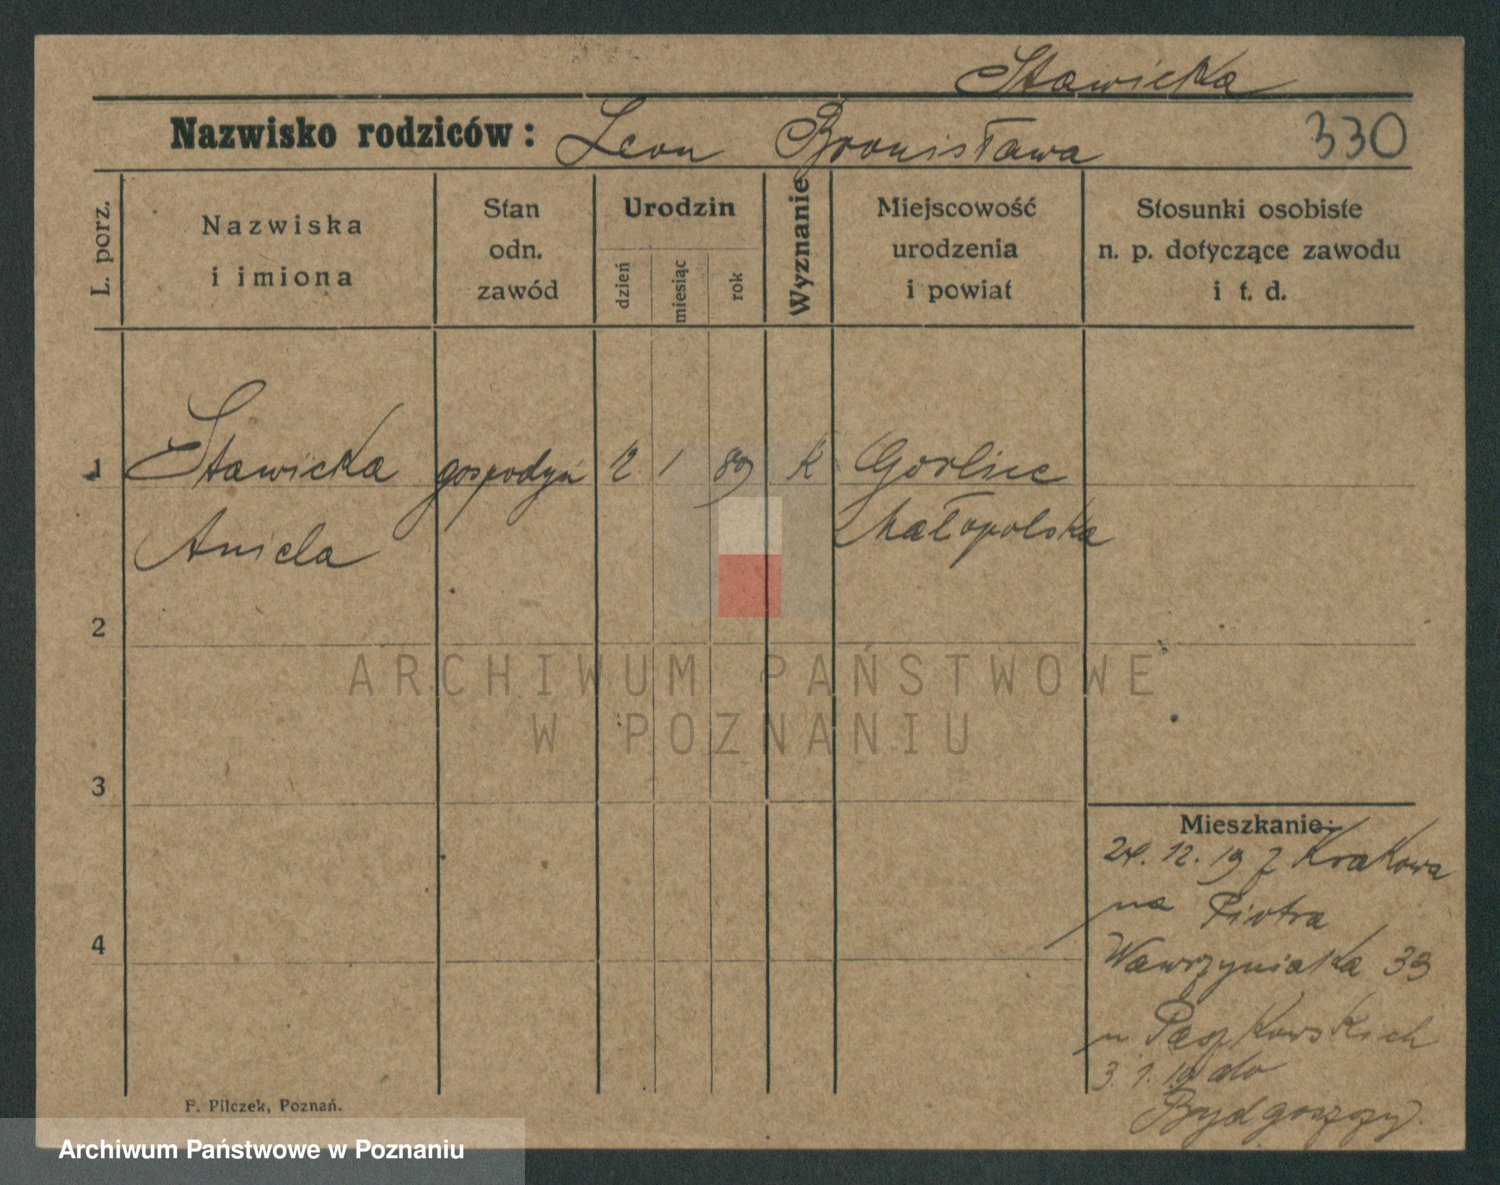 Stawicka
Nazwisko rodziców: Leon Bronisława 330
L. porz.
Nazwiska
i imiona
Stan
odn.
zawód
Urodzin
dzień
miesiąc
rok
Wyznanie
Miejscowość
urodzenia
i powiat
Stosunki osobiste
n. p. dotyczące zawodu
i t. d.
1 Stawicka gospodyń 12. 1 89 K Gorlice
Aniela Małopolska
2
ARCHIWUM PAŃSTWOWE
W POZNANIU
3
Mieszkanie:
24. 12. 19 z Krakowa
na Piotra
4
Wawrzyniaka 33
u
3. 1. do
Bydgoszczy.
F. Pilczek, Poznań.
Archiwum Państwowe w Poznaniu